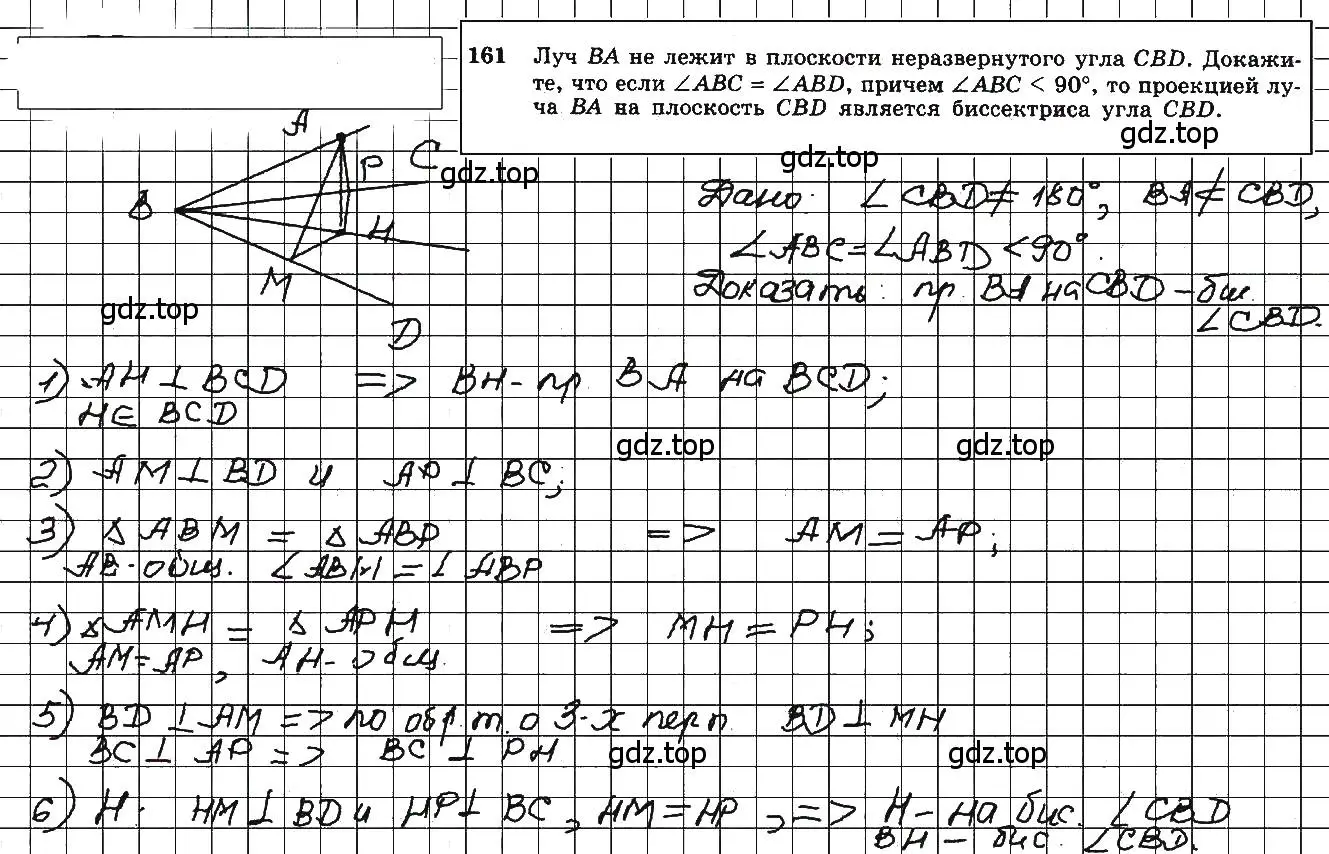 161 Луч BA не лежит в плоскости неразвернутого угла CBD. Докажи-
те, что если ∠ABC = ∠ABD, причем ∠ABC < 90°, то проекцией лу-
ча BA на плоскость CBD является биссектриса угла CBD.
gdz.top
gdz.top
gdz.top
A
P
C
B
H
M
D
Дано: ∠CBD ≠ 180°, BA ⊄ CBD,
∠ABC = ∠ABD < 90°.
Доказать: пр. BA на CBD – бис.
∠CBD.
gdz.top
1) AH ⊥ BCD => BH – пр BA на BCD;
H ∈ BCD
gdz.top
gdz.top
2) AM ⊥ BD и AP ⊥ BC;
3) △ABM = △ABP => AM = AP;
AB - общ. ∠ABM = ∠ABP
4) △AMH = △APH => MH = PH;
AM = AP, AH - общ.
5) BD ⊥ AM => по обр. т. о 3-х перп BD ⊥ MH
BC ⊥ AP => BC ⊥ PH
gdz.top
gdz.top
6) H: HM ⊥ BD и HP ⊥ BC, HM = HP, => H – на бис. ∠CBD
BH – бис. ∠CBD.